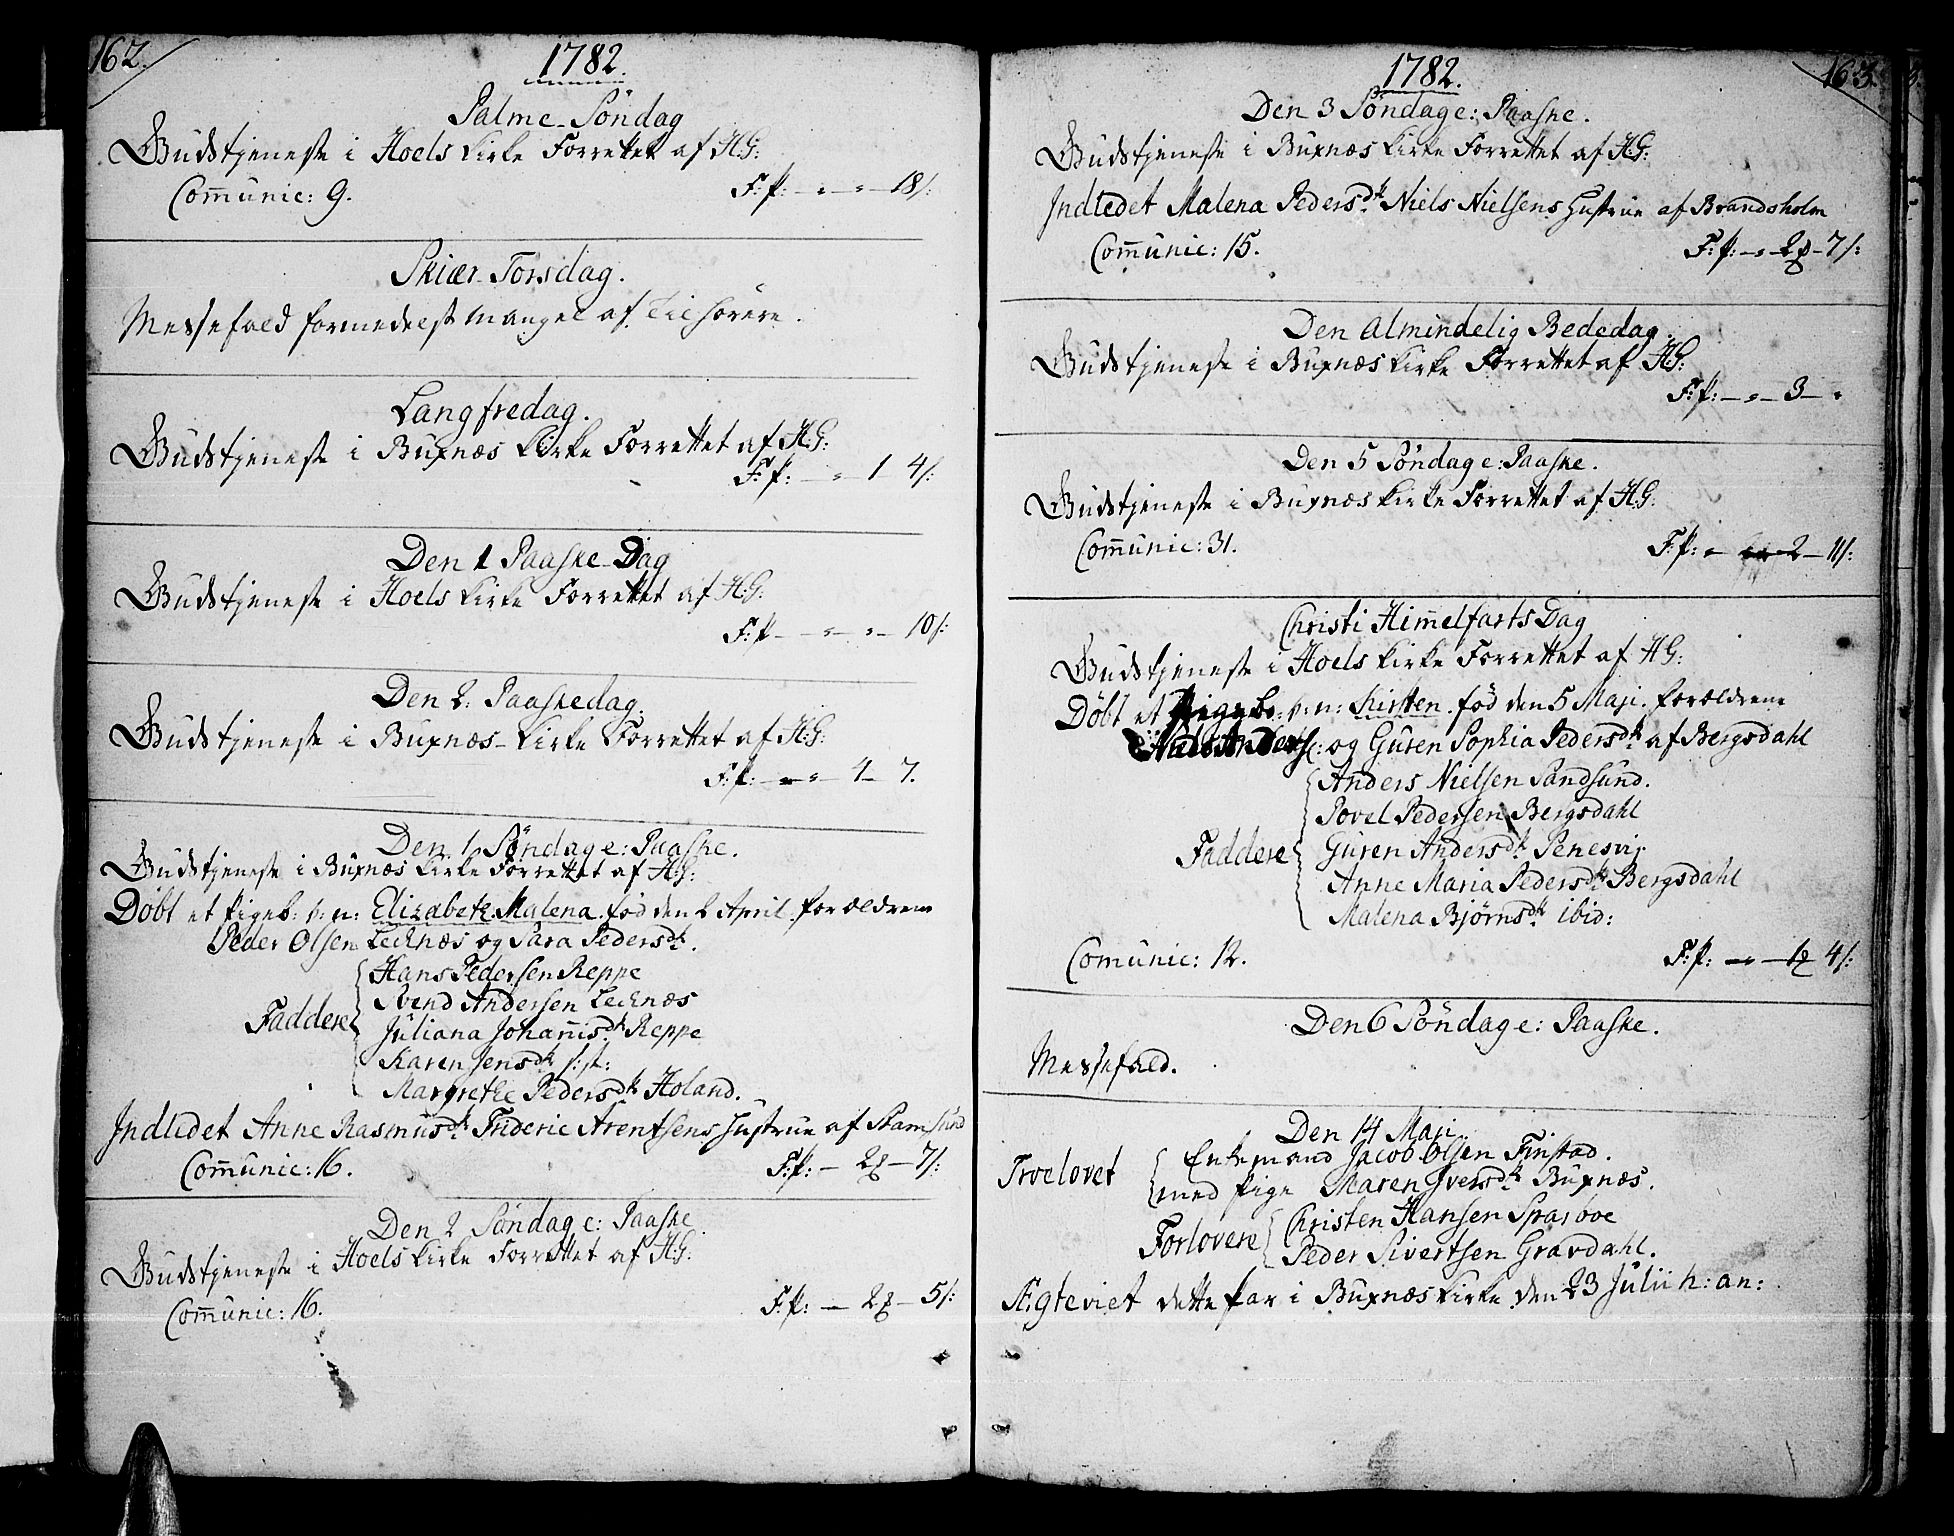 162.
1782.
Palme-Söndag
Gudstjeneste i Hoels kirke Forrettet af H:G:
Com̅unic: 9. F:P: - " - " - 18 s:
Skiær-Torsdag.
Messefald formedelst mangel af Tilhörere.
Langfredag.
Gudstjeneste i Buxnæs kirke Forrettet af H:G:
F:P: - " 1 4 s:
Den 1 Paaske-Dag
Gudstjeneste i Hoels kirke Forrettet af H:G:
F:P - " - " - 10 s:
Den 2. Paaskedag.
Gudstjeneste i Buxnæs-kirke Forrettet af H:G:
F:P: - " - 4 - 7.
Den 1 Söndag e: Paaske.
Gudstjeneste i Buxnæs kirke Forrettet af H:G:
Döbt et Pigeb: v: n: Elizabeth Malena. föd den 2 April. forældrene
Peder Olsen Lecknæs og Sara Pedersdr.
Faddere
Hans Pedersen Reppe
Svend Andersen Lecknæs
Juliana Johan̅isdr. Reppe
Karen Jensdr.
Margrethe Pedersdr. Holand.
Indledet Anne Rasmusdr. Frideric Arentsens Hustrue af Stamsund
Com̅unic: 16. F:P: - 2 - 7 s:
Den 2 Söndag e: Paaske
Gudstjeneste i Hoels kirke Forrettet af H:G:
Com̅unic: 16. F:P: - 2 - 5 s:
163.
1782.
Den 3 Söndag e: Paaske.
Gudstjeneste i Buxnæs kirke Forrettet af H:G:
Indledet Malena Pedersdr. Niels Nielsens Hustrue af Brandsholm
Com̅unic: 15. F:P: - " - 2 - 7 s:
Den Almindelig Bededag.
Gudstjeneste i Buxnæs kirke Forrettet af H:G:
F:P: - " - 3 - "
Den 5 Söndag e: Paaske.
Gudstjeneste i Buxnæs kirke Forrettet af H:G:
Com̅unic: 31. F:P: " 2 - 11 s:
Christi Him̅elfarts Dag
Gudstjeneste i Hoels kirke Forrettet af H:G:
Döbt et Pigeb: v: n: Kirsten. föd den 5 Maji. forældrene
Niels Anders: og Guren Sophia Pedersdr. af Bergsdahl
Faddere
Anders Nielsen Sandsund.
Povel Pedersen Bergsdahl
Guren Andersdr. Penesvig.
Anne Maria Pedersdr. Bergsdahl
Malena Bjørnsdr. ibid:
Comunic: 12. F:P: - " - 1 4 s:
Den 6 Söndag e: Paaske.
Messefald.
Den 14 Maji.
Troelovet
Enkemand Jacob Olsen Finstad.
med Pige Maren Iversdr. Buxnæs.
Forlovere
Christen Hansen Sparböe
Peder Sivertsen Gravdahl.
Ægteviet dette Par i Buxnæs kirke den 23 Julii h: an: